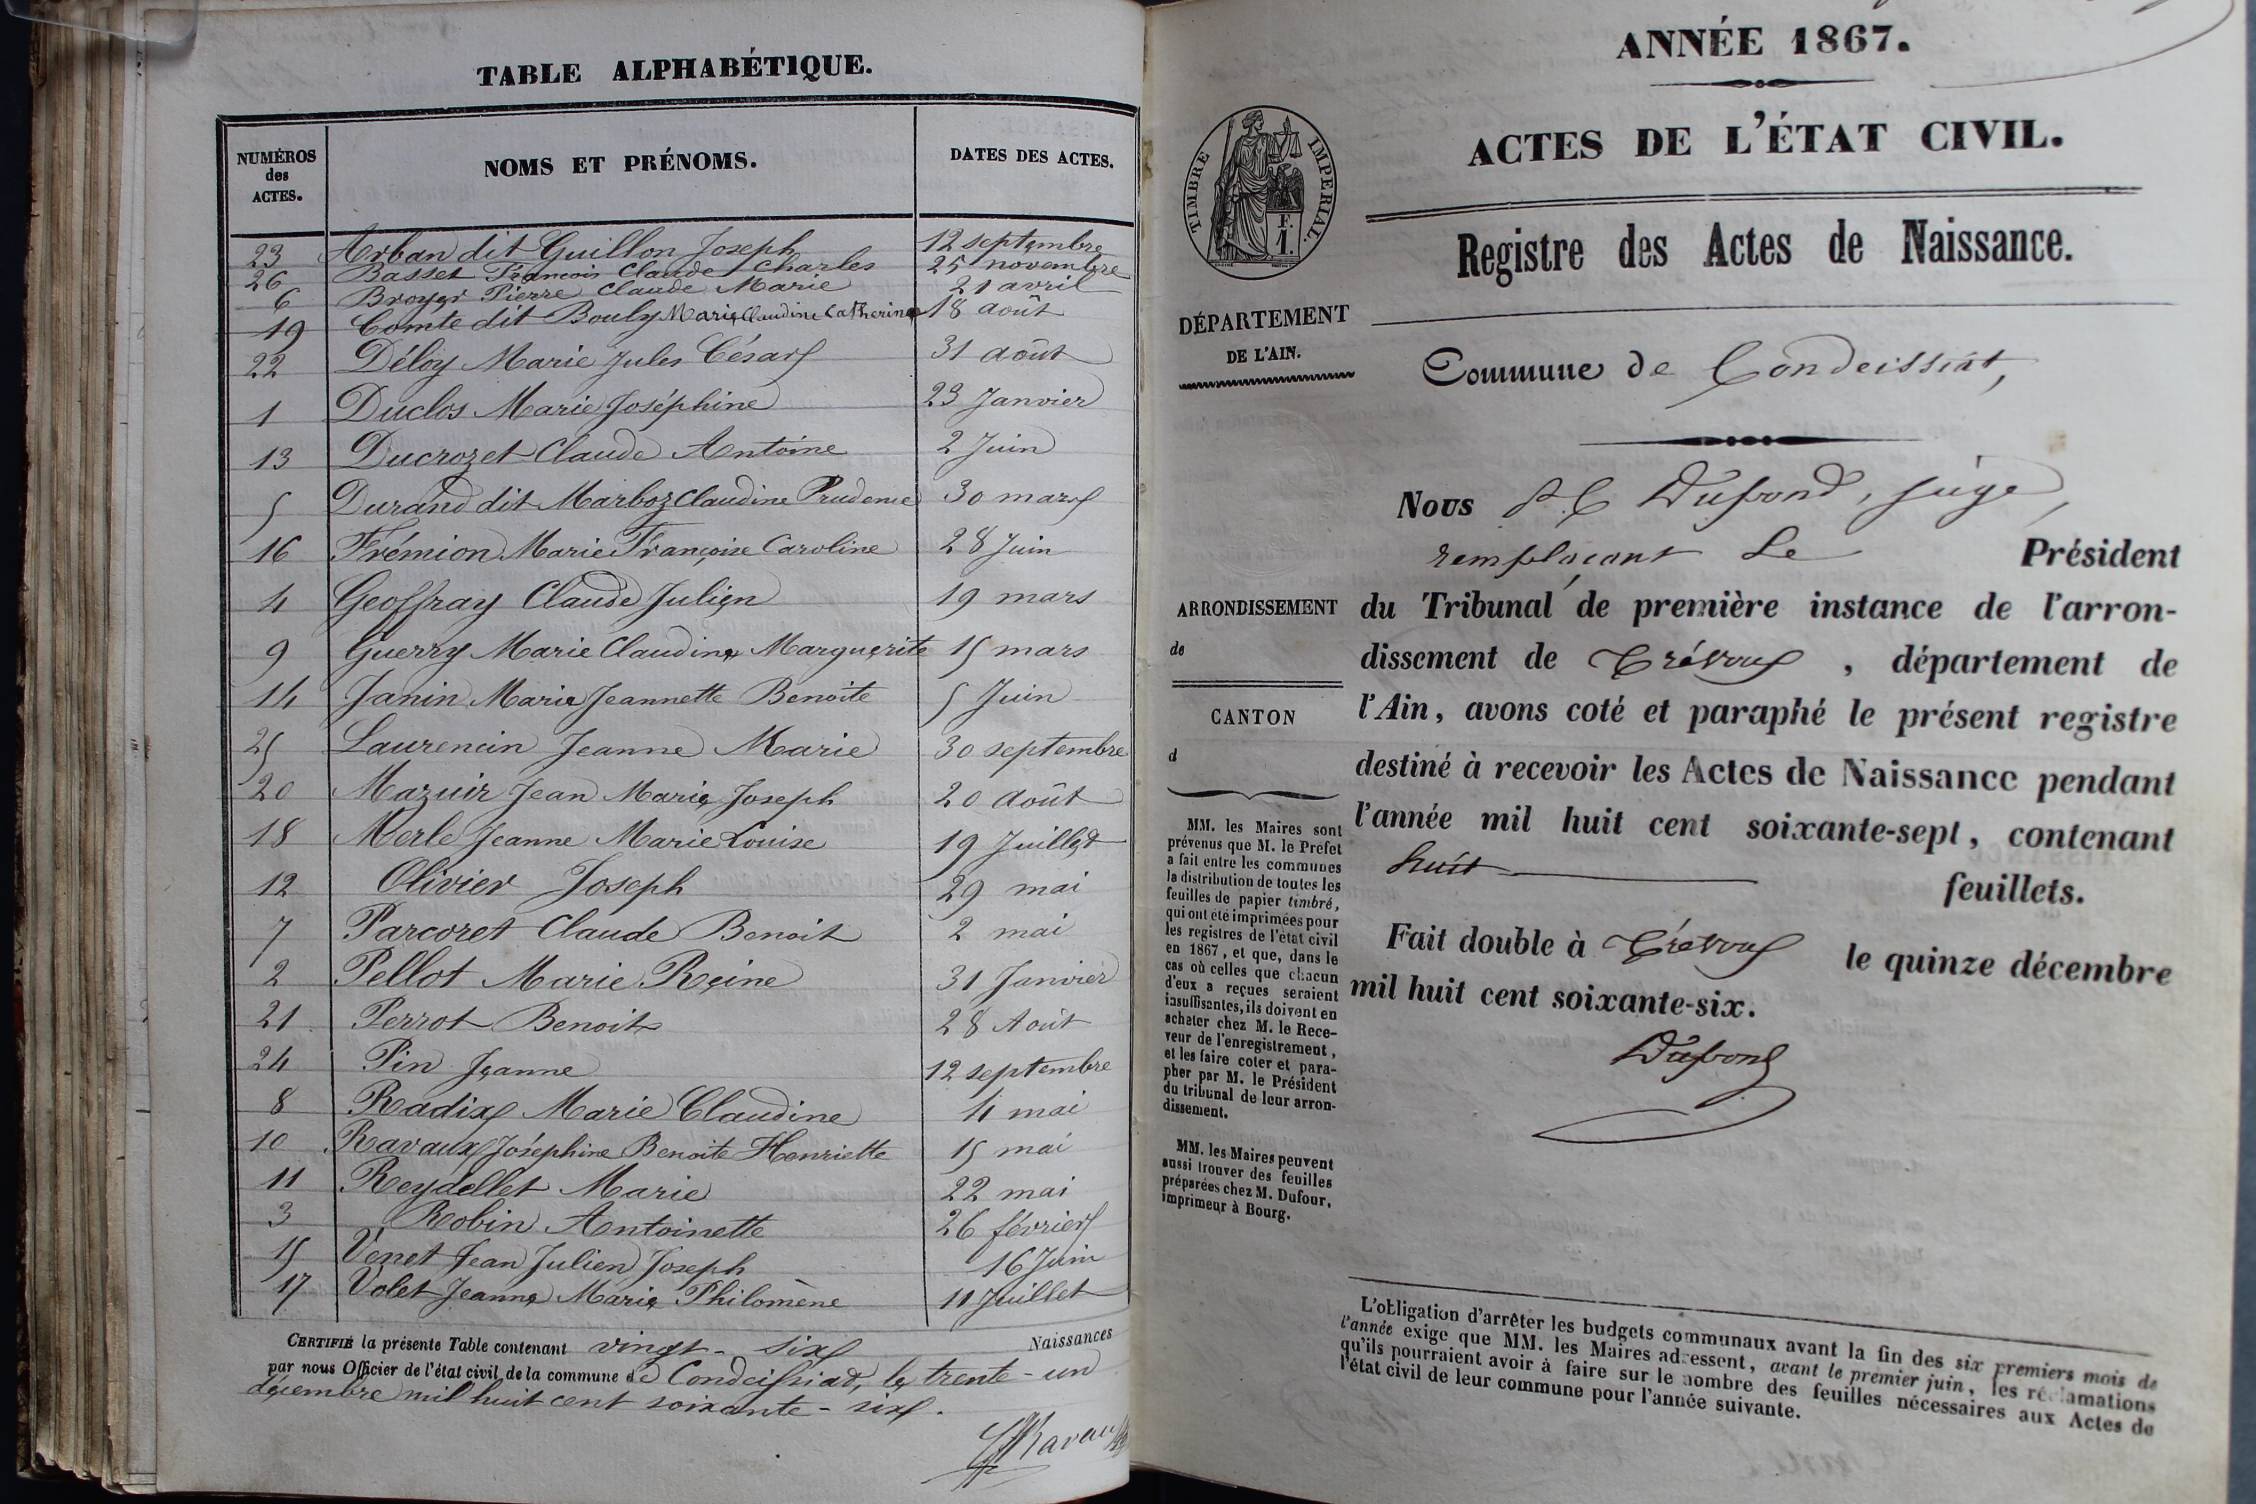 TABLE ALPHABÉTIQUE.
NUMÉROS des ACTES. NOMS ET PRÉNOMS. DATES DES ACTES.
23 Arban dit Guillon Joseph 12 septembre
26 Basset François Claude Charles 25 novembre
6 Broyer Pierre Claude Marie 21 avril
19 Comte dit Bouly Marie Claudine Catherine 18 août
22 Déloy Marie Jules César 31 août
1 Duclos Marie Joséphine 23 Janvier
13 Ducrozet Claude Antoine 2 Juin
5 Durand dit Marboz Claudine Prudence 30 mars
16 Frémion Marie Françoise Caroline 28 Juin
4 Geoffray Claude Julien 19 mars
9 Guerry Marie Claudine Marguerite 15 mars
14 Janin Marie Jeannette Benoite 5 Juin
25 Laurencin Jeanne Marie 30 septembre
20 Mazuir Jean Marie Joseph 20 août
18 Merle Jeanne Marie Louise 19 Juillet
12 Olivier Joseph 29 mai
7 Parcoret Claude Benoit 2 mai
2 Pellot Marie Reine 31 Janvier
21 Perrot Benoit 28 Août
24 Pin Jeanne 12 septembre
8 Radix Marie Claudine 4 mai
10 Ravaux Joséphine Benoite Henriette 15 mai
11 Reydellet Marie 22 mai
3 Robin Antoinette 26 février
15 Venet Jean Julien Joseph 16 Juin
17 Volet Jeanne Marie Philomène 11 Juillet
CERTIFIÉ la présente Table contenant vingt-six Naissances
par nous Officier de l'état civil de la commune de Condeissiat, le trente-un
décembre mil huit cent soixante-six.
Ravaux
ANNÉE 1867.
ACTES DE L'ÉTAT CIVIL.
TIMBRE IMPERIAL.
F.
1.
Registre des Actes de Naissance.
DÉPARTEMENT
DE L'AIN.
Commune de Condeissiat,
Nous Dupond, juge,
remplaçant Le Président
ARRONDISSEMENT
de
du Tribunal de première instance de l'arron-
dissement de Trévoux, département de
CANTON
d
l'Ain, avons coté et paraphé le présent registre
destiné à recevoir les Actes de Naissance pendant
l'année mil huit cent soixante-sept, contenant
huit feuillets.
Fait double à Trévoux le quinze décembre
mil huit cent soixante-six.
Dupond
MM. les Maires sont
prévenus que M. le Préfet
a fait entre les communes
la distribution de toutes les
feuilles de papier timbré,
qui ont été imprimées pour
les registres de l'état civil
en 1867, et que, dans le
cas où celles que chacun
d'eux a reçues seraient
insuffisantes, ils doivent en
acheter chez M. le Rece-
veur de l'enregistrement,
et les faire coter et para-
pher par M. le Président
du tribunal de leur arron-
dissement.
MM. les Maires peuvent
aussi trouver des feuilles
préparées chez M. Dufour,
imprimeur à Bourg.
L'obligation d'arrêter les budgets communaux avant la fin des six premiers mois de
l'année exige que MM. les Maires adressent, avant le premier juin, les réclamations
qu'ils pourraient avoir à faire sur le nombre des feuilles nécessaires aux Actes de
l'état civil de leur commune pour l'année suivante.